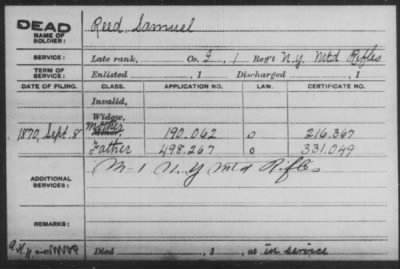 DEAD Reed, Samuel
NAME OF
SOLDIER:
SERVICE: Late rank, Co. I, 1 Reg't N.Y. Mtd Rifles
TERM OF
SERVICE: Enlisted , 1 Discharged , 1
DATE OF FILING. CLASS. APPLICATION NO. LAW. CERTIFICATE NO.
Invalid,
Widow,
1870, Sept. 8 Mother 190.062 o 216.367
Father 498.267 o 331.049
ADDITIONAL
SERVICES: M-1 N.Y Mtd Rifles
REMARKS:
Died , 1 , at in service